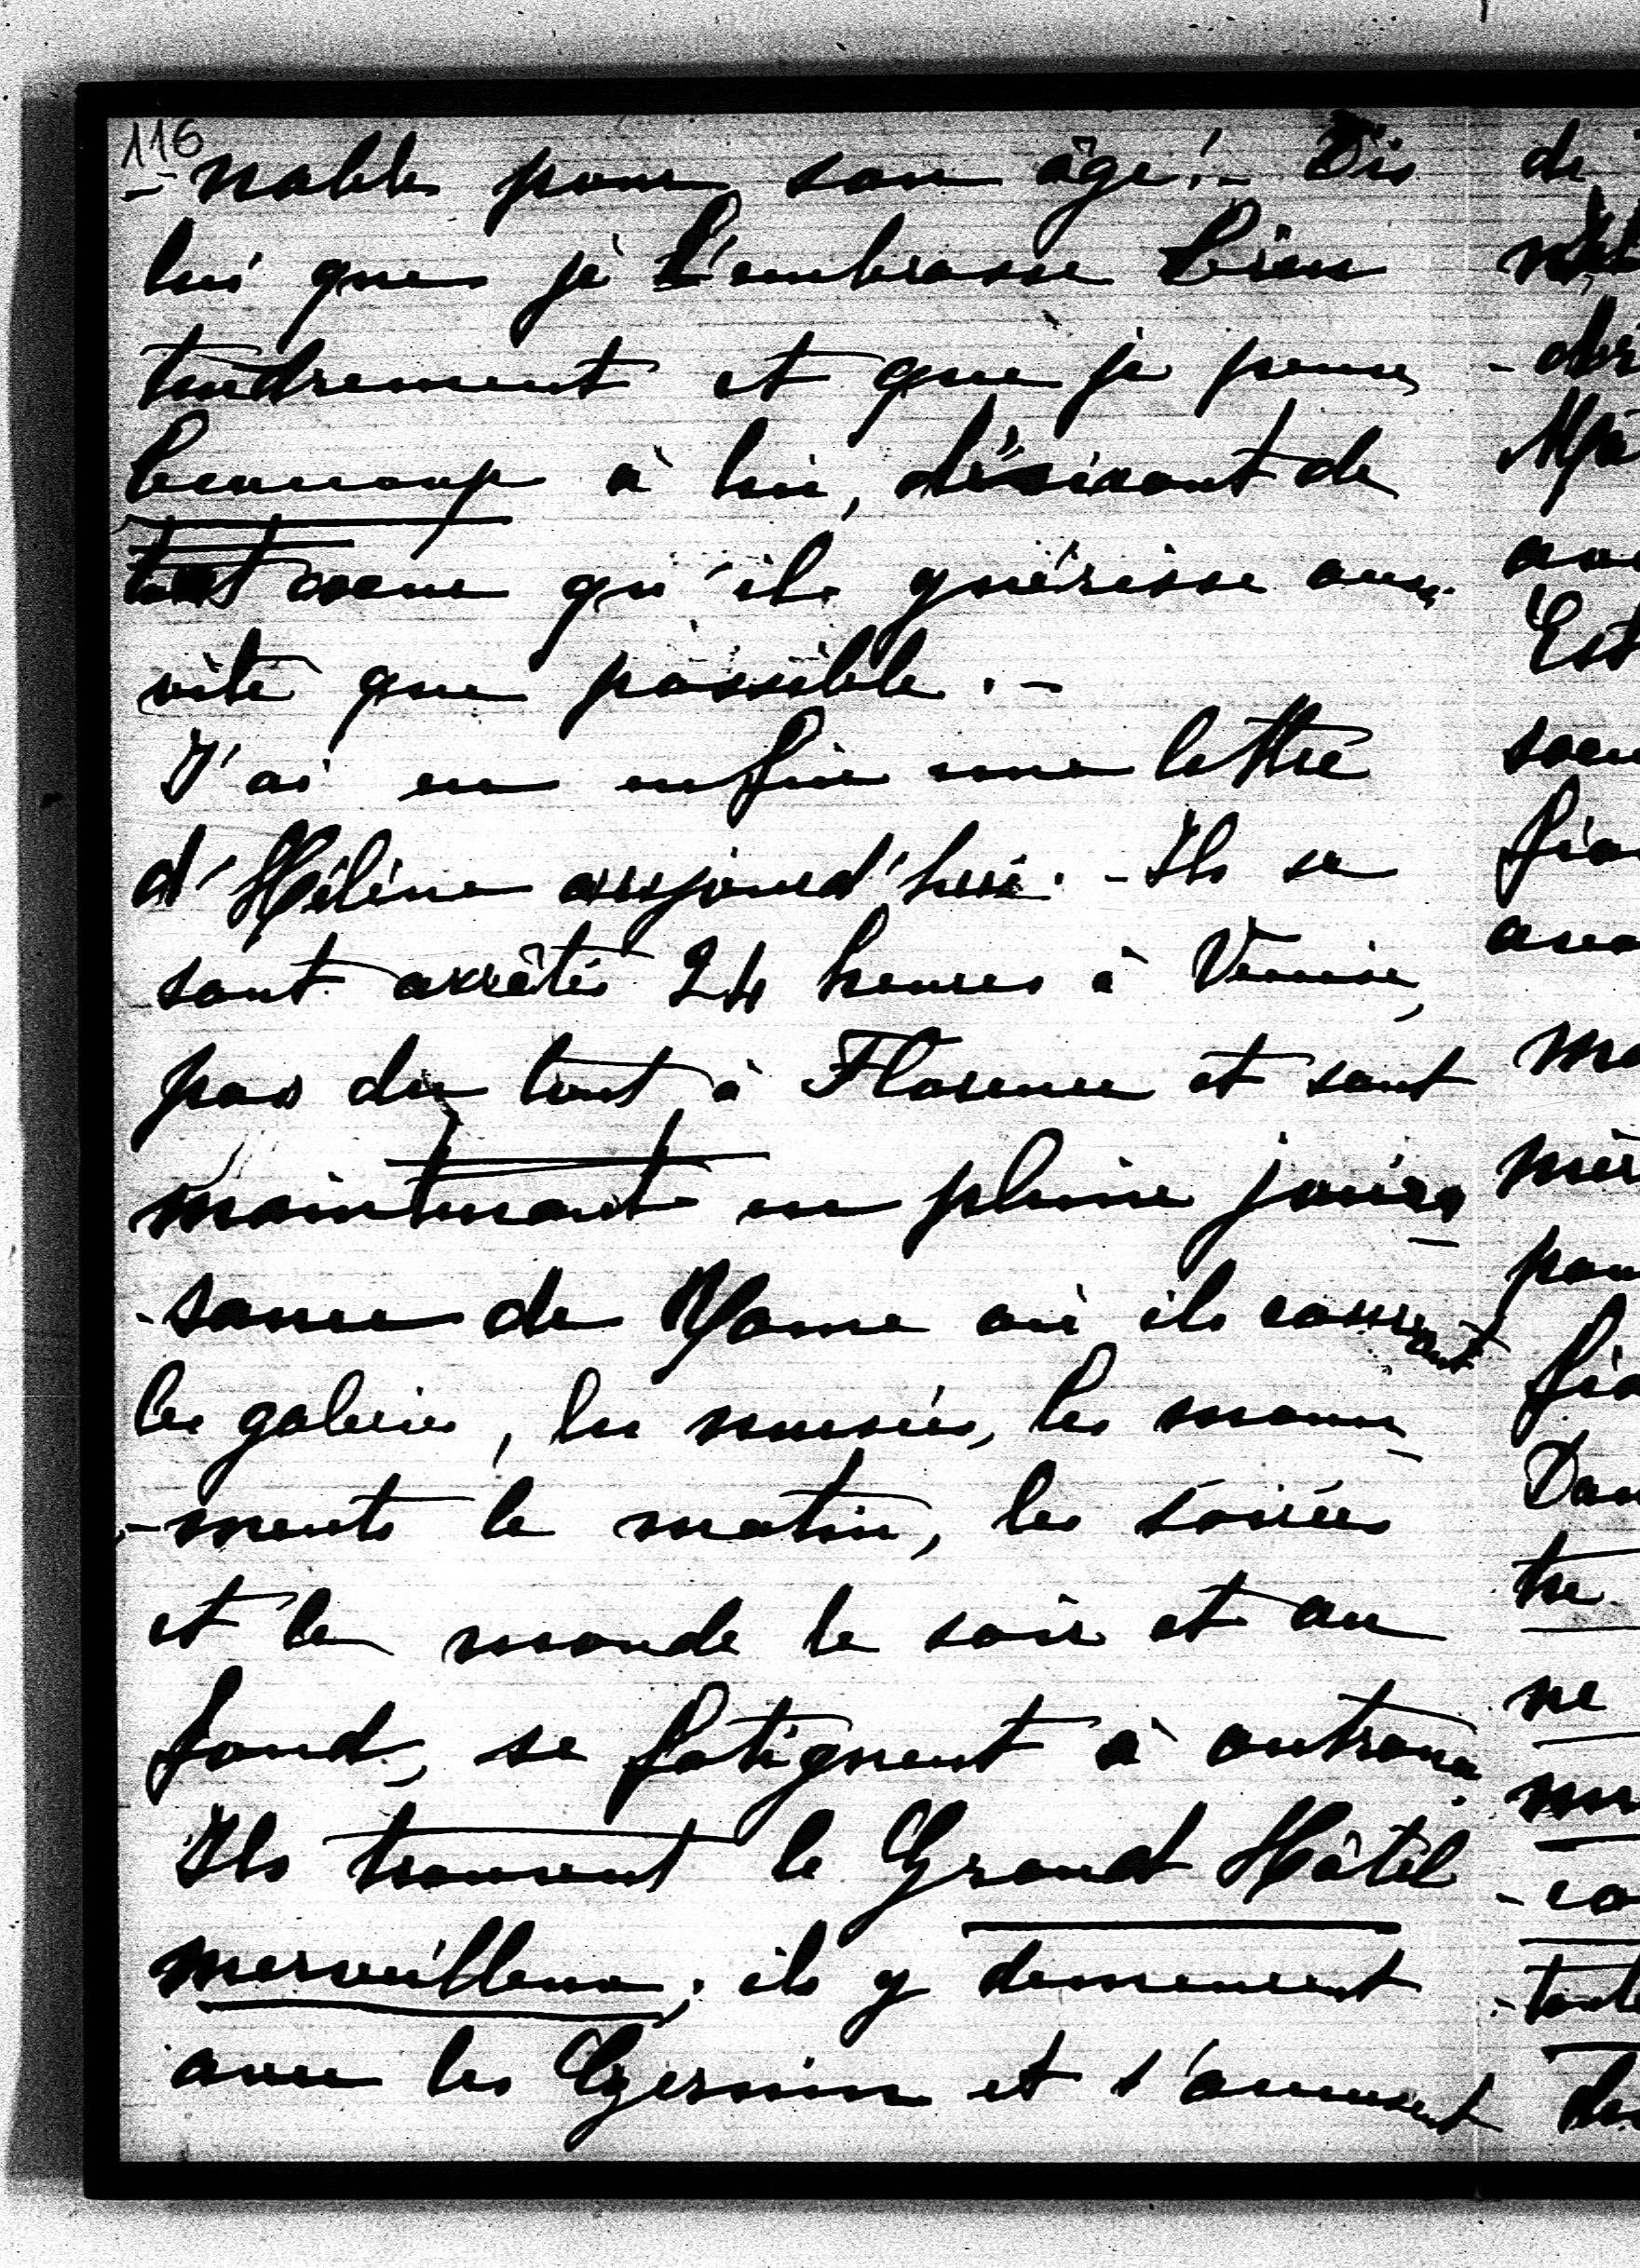 116
-nable pour son âge! - Dis
lui que je l'embrasse bien
tendrement et que je pense
beaucoup à lui, désirant de
tout coeur qu'il guérisse aussi
vite que possible. -
J'ai eu enfin une lettre
d'Hélène aujourd'hui. - Ils se
sont arrêtés 24 heures à Venise,
pas du tout à Florence et sont
maintenant en pleine jouis-
-sance de Rome où ils courent
les galeries, les musées, les monu-
-ments le matin, les soirées
et le monde le soir et au
fond, se fatiguent à outrance.
Ils trouvent le Grand Hôtel
merveilleux; ils y demeurent
avec les Czernin et s'amusent